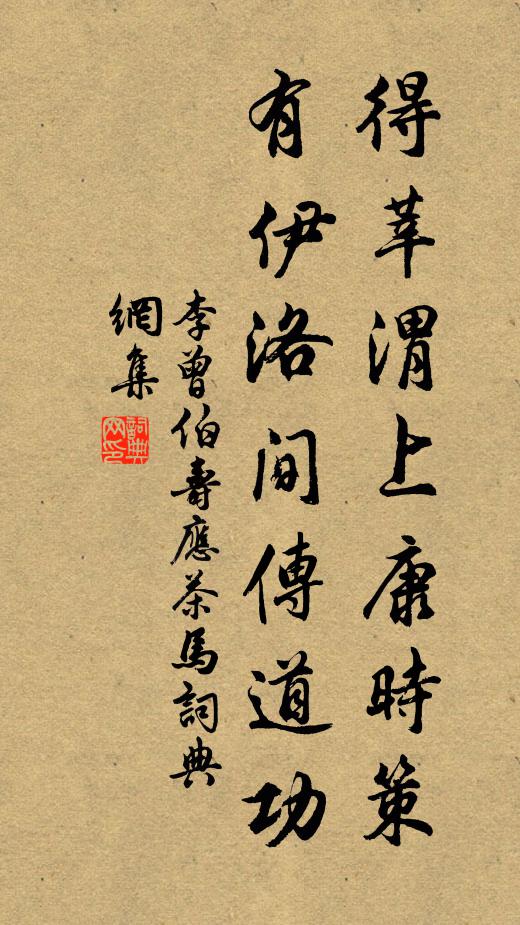 得莘渭上康時策
有伊洛間傳道功
李曾伯壽應茶馬詞典
網集
詞典網印